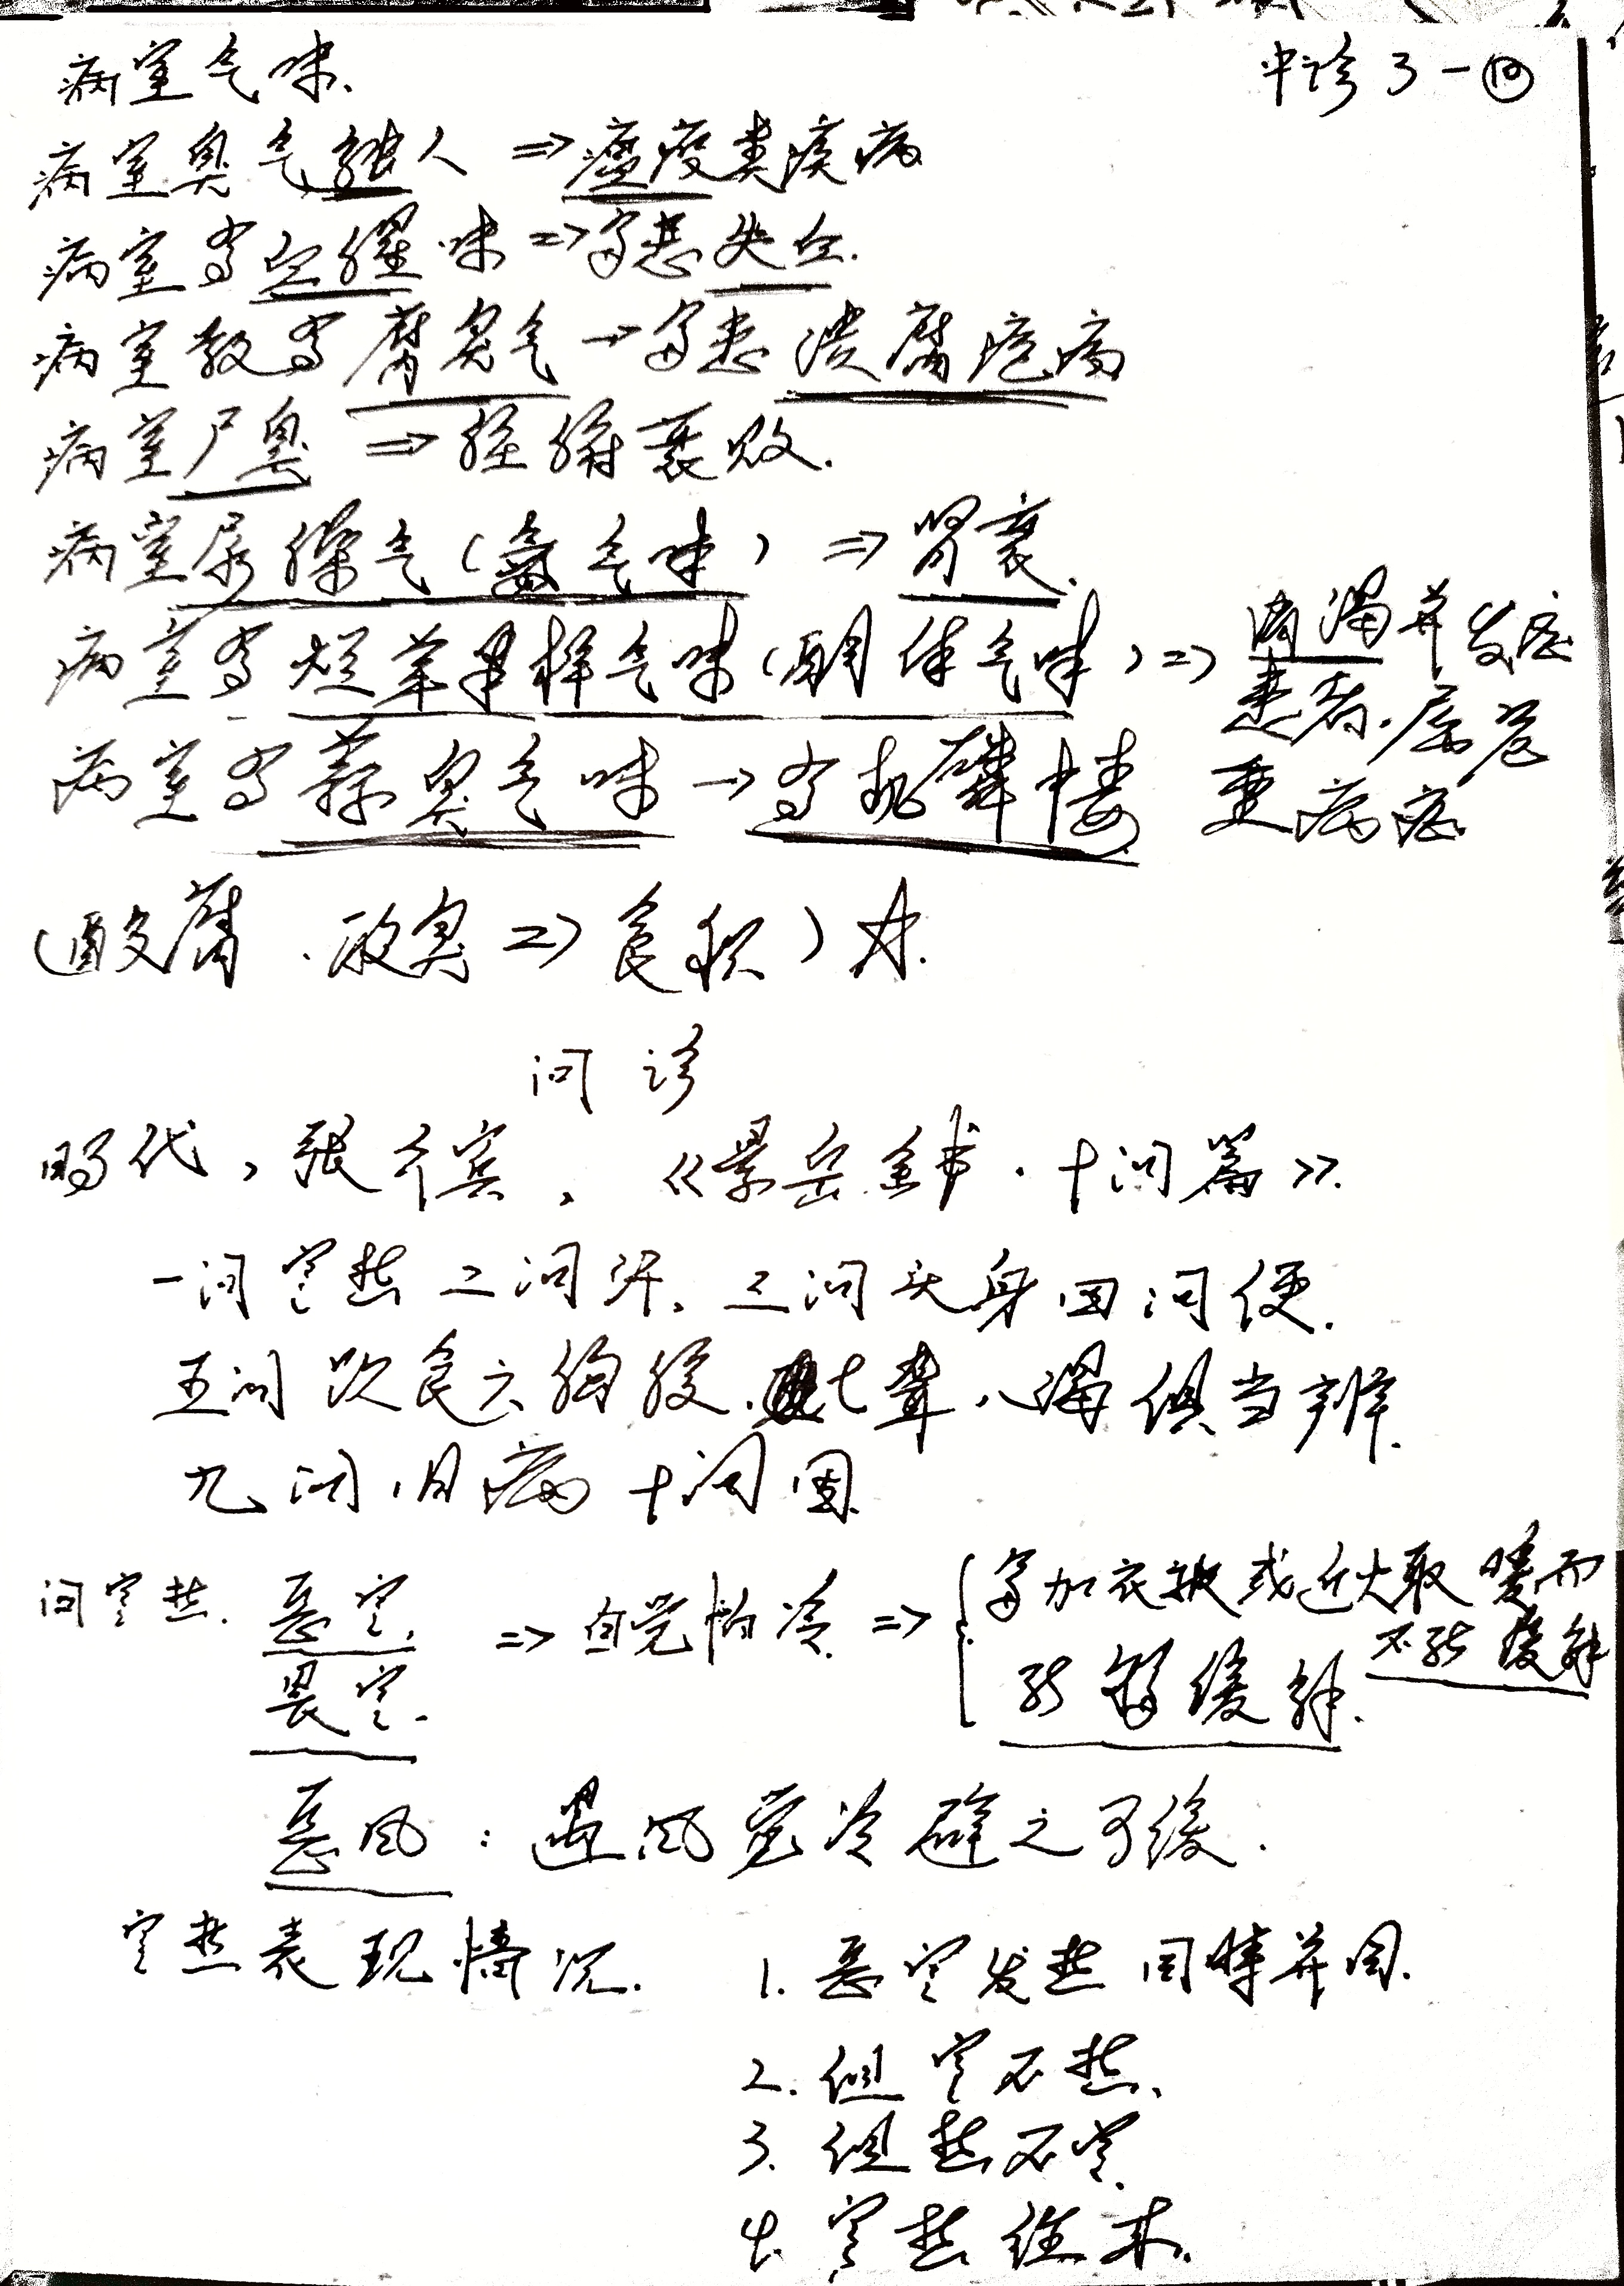 中诊 3-⑩
病室气味.
病室臭气触人 ⇒ 瘟疫类疾病
病室有血腥味 ⇒ 多患失血.
病室散有腐臭气 → 多患溃腐疮疡
病室尸臭 ⇒ 脏腑衰败.
病室尿臊气(氨气味) ⇒ 肾衰.
病室有烂苹果样气味(酮体气味) ⇒ 消渴并发症
患者. 属危
重病症.
病室有蒜臭气味 → 有机磷中毒
(酸腐、酸臭 ⇒ 食积)
问诊
明代, 张介宾, 《景岳全书·十问篇》.
一问寒热二问汗, 三问头身四问便.
五问饮食六胸腹. 七聋八渴俱当辨.
九问旧病十问因.
问寒热. 恶寒. ⇒ 自觉怕冷 ⇒ 多加衣被或近火取暖而
不能缓解
畏寒. 能够缓解.
恶风: 遇风觉冷避之可缓.
寒热表现情况. 1. 恶寒发热同时并见.
2. 但寒不热.
3. 但热不寒.
4. 寒热往来.